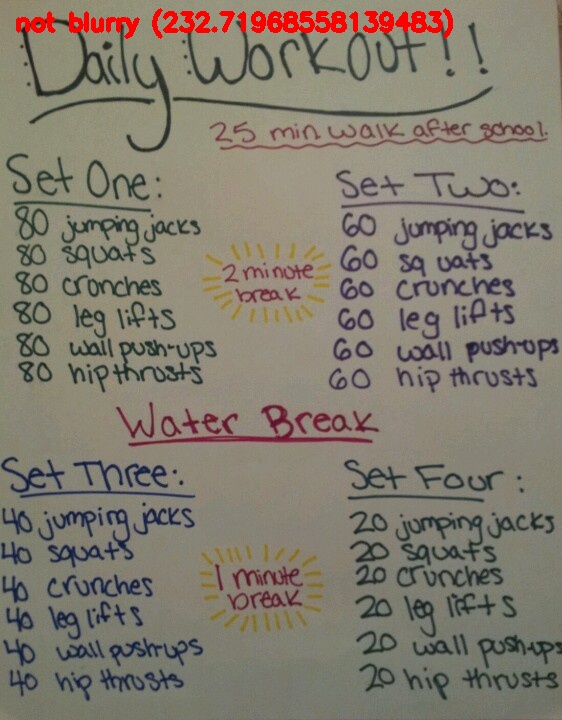 not blurry (232.71968558139483)
Daily Workout!!
25 min walk after school.
Set One:
80 jumping jacks
80 squats
80 cronches
80 leg lifts
80 wall push-ups
80 hip thrusts
2 minute
break
Set Two:
60 jumping jacks
60 squats
60 crunches
60 leg lifts
60 wall push-ups
60 hip thrusts
Water Break
Set Three:
40 jumping jacks
40 squats
40 crunches
40 leg lifts
40 wall push-ups
40 hip thrusts
1 minute
break
Set Four:
20 jumping jacks
20 squats
20 crunches
20 leg lifts
20 wall push-ups
20 hip thrusts